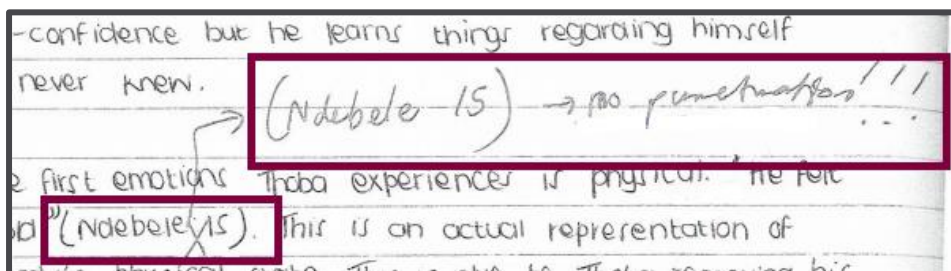 -confidence but he learns things regarding himself
never knew.
(Ndebele 15) → no punctuation!!!
e first emotions Thoba experiences is physical. "He felt
(Ndebele 15). This is an actual representation of
physical state. This is to Thoba his